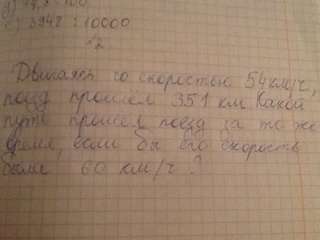 3942 : 10000
Двигаясь со скоростью 54 км/ч,
поезд прошёл 351 км. Какой
путь прошёл поезд за то же
время, если бы его скорость
была 60 км/ч?